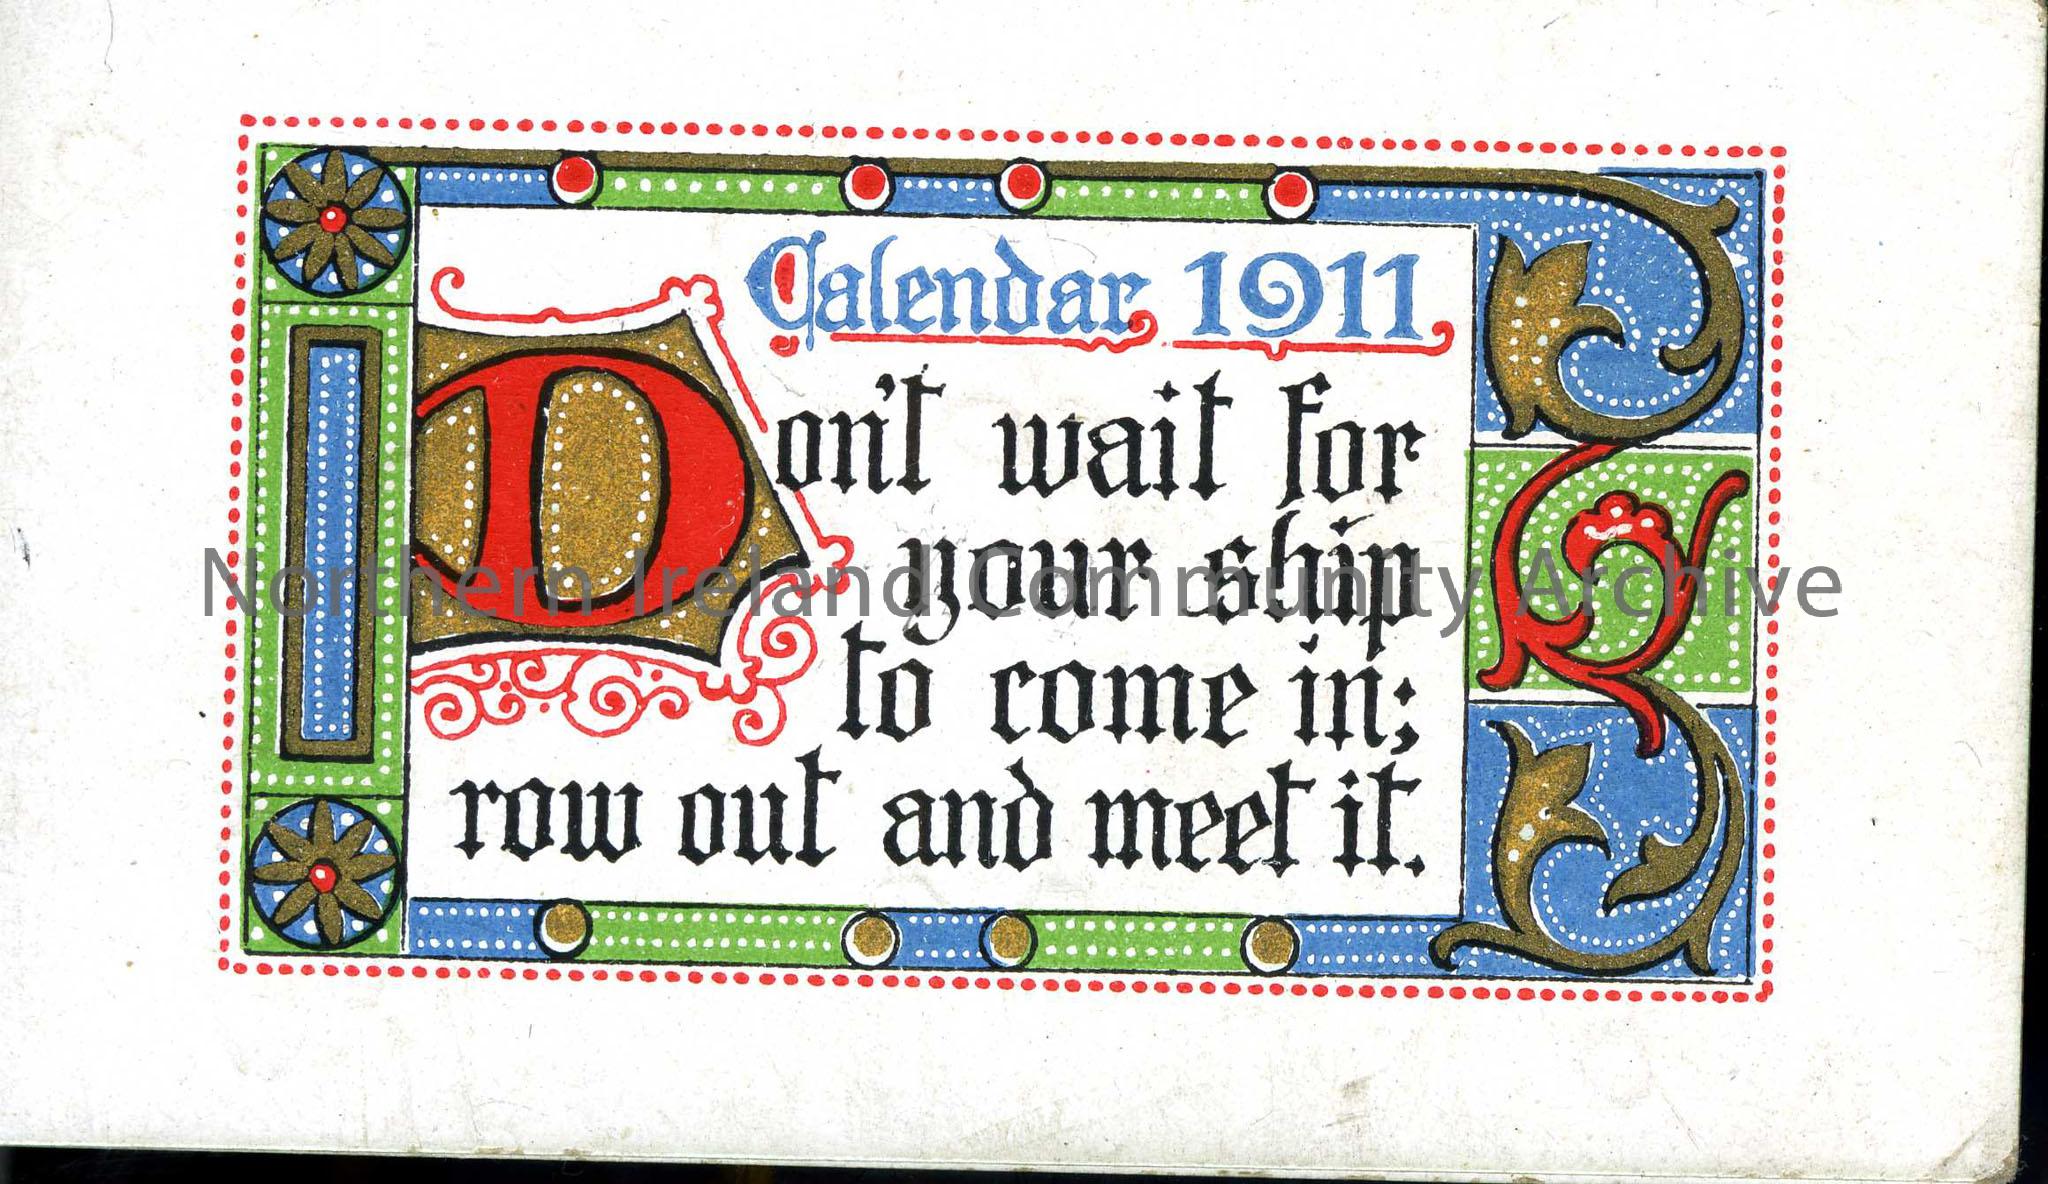 Calendar 1911
Don't wait for
your ship
to come in;
row out and meet it.
Northern Ireland Community Archive